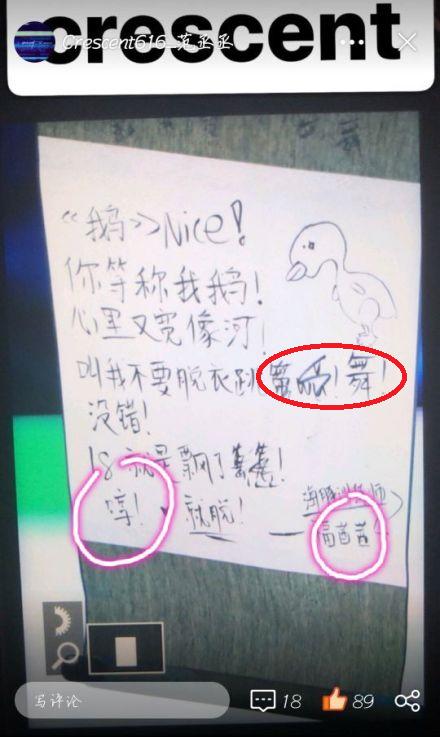 crescent
Crescent616_范丞丞
《鹅》Nice!
你等称我鹅!
心里又宽像河!
叫我不要脱衣跳 舞!
没错!
18 就是飘了
哼! 就脱!
写评论
18
89